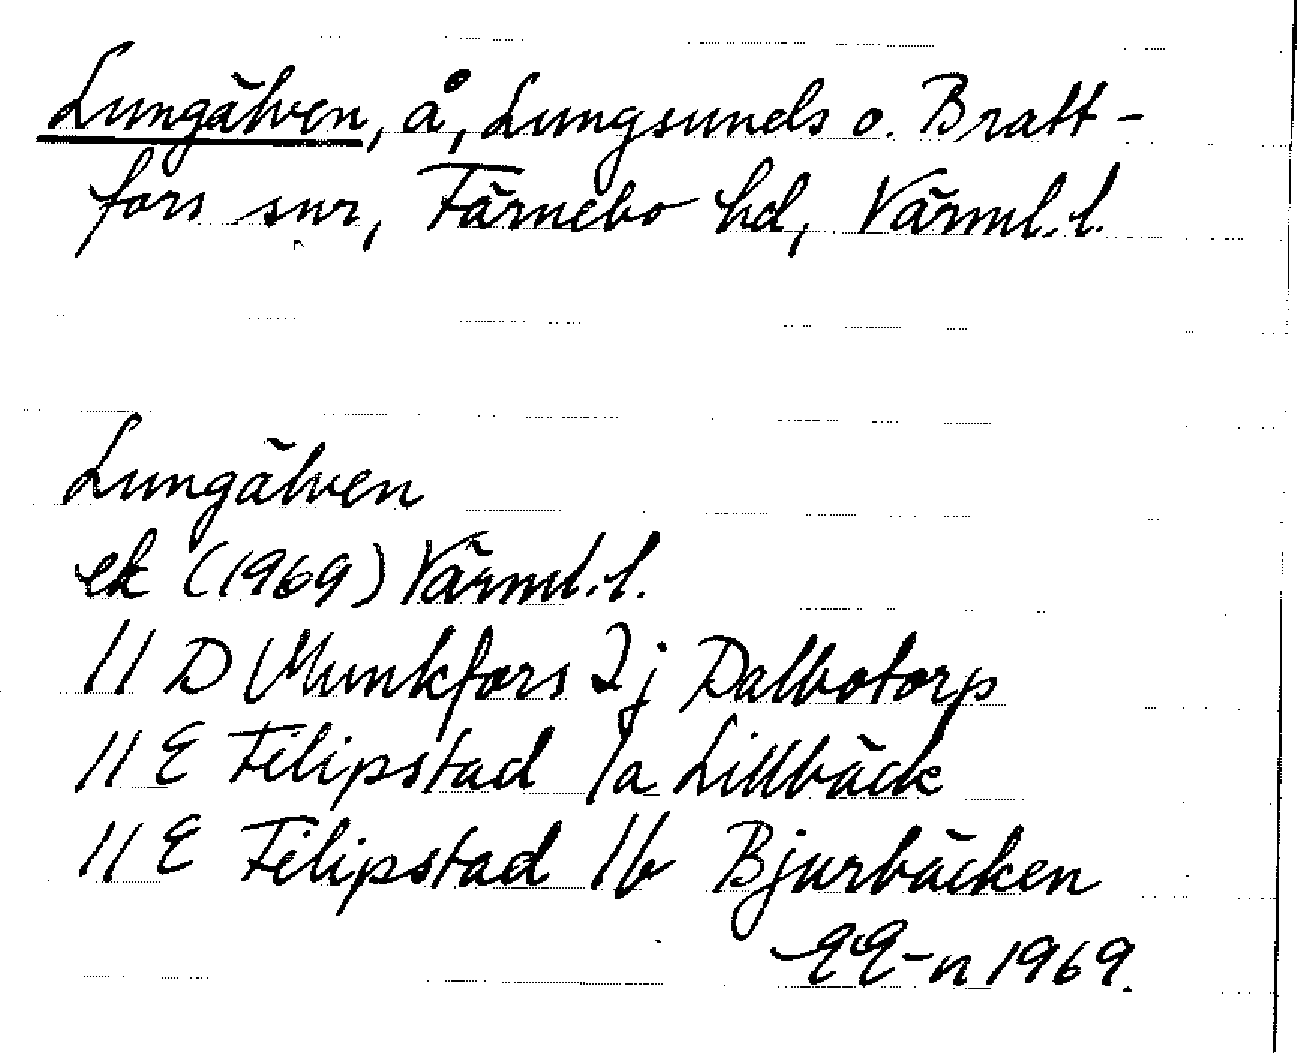 Lungälven, å, Lungsunds o. Bratt-
fors snr, Färnebo hd, Värml. l.
Lungälven
ek (1969) Värml. l.
11 D Munkfors 2j Dalbotorp
11 E Filipstad 1a Lillbäck
11 E Filipstad 1b Bjurbäcken
EE-n 1969.